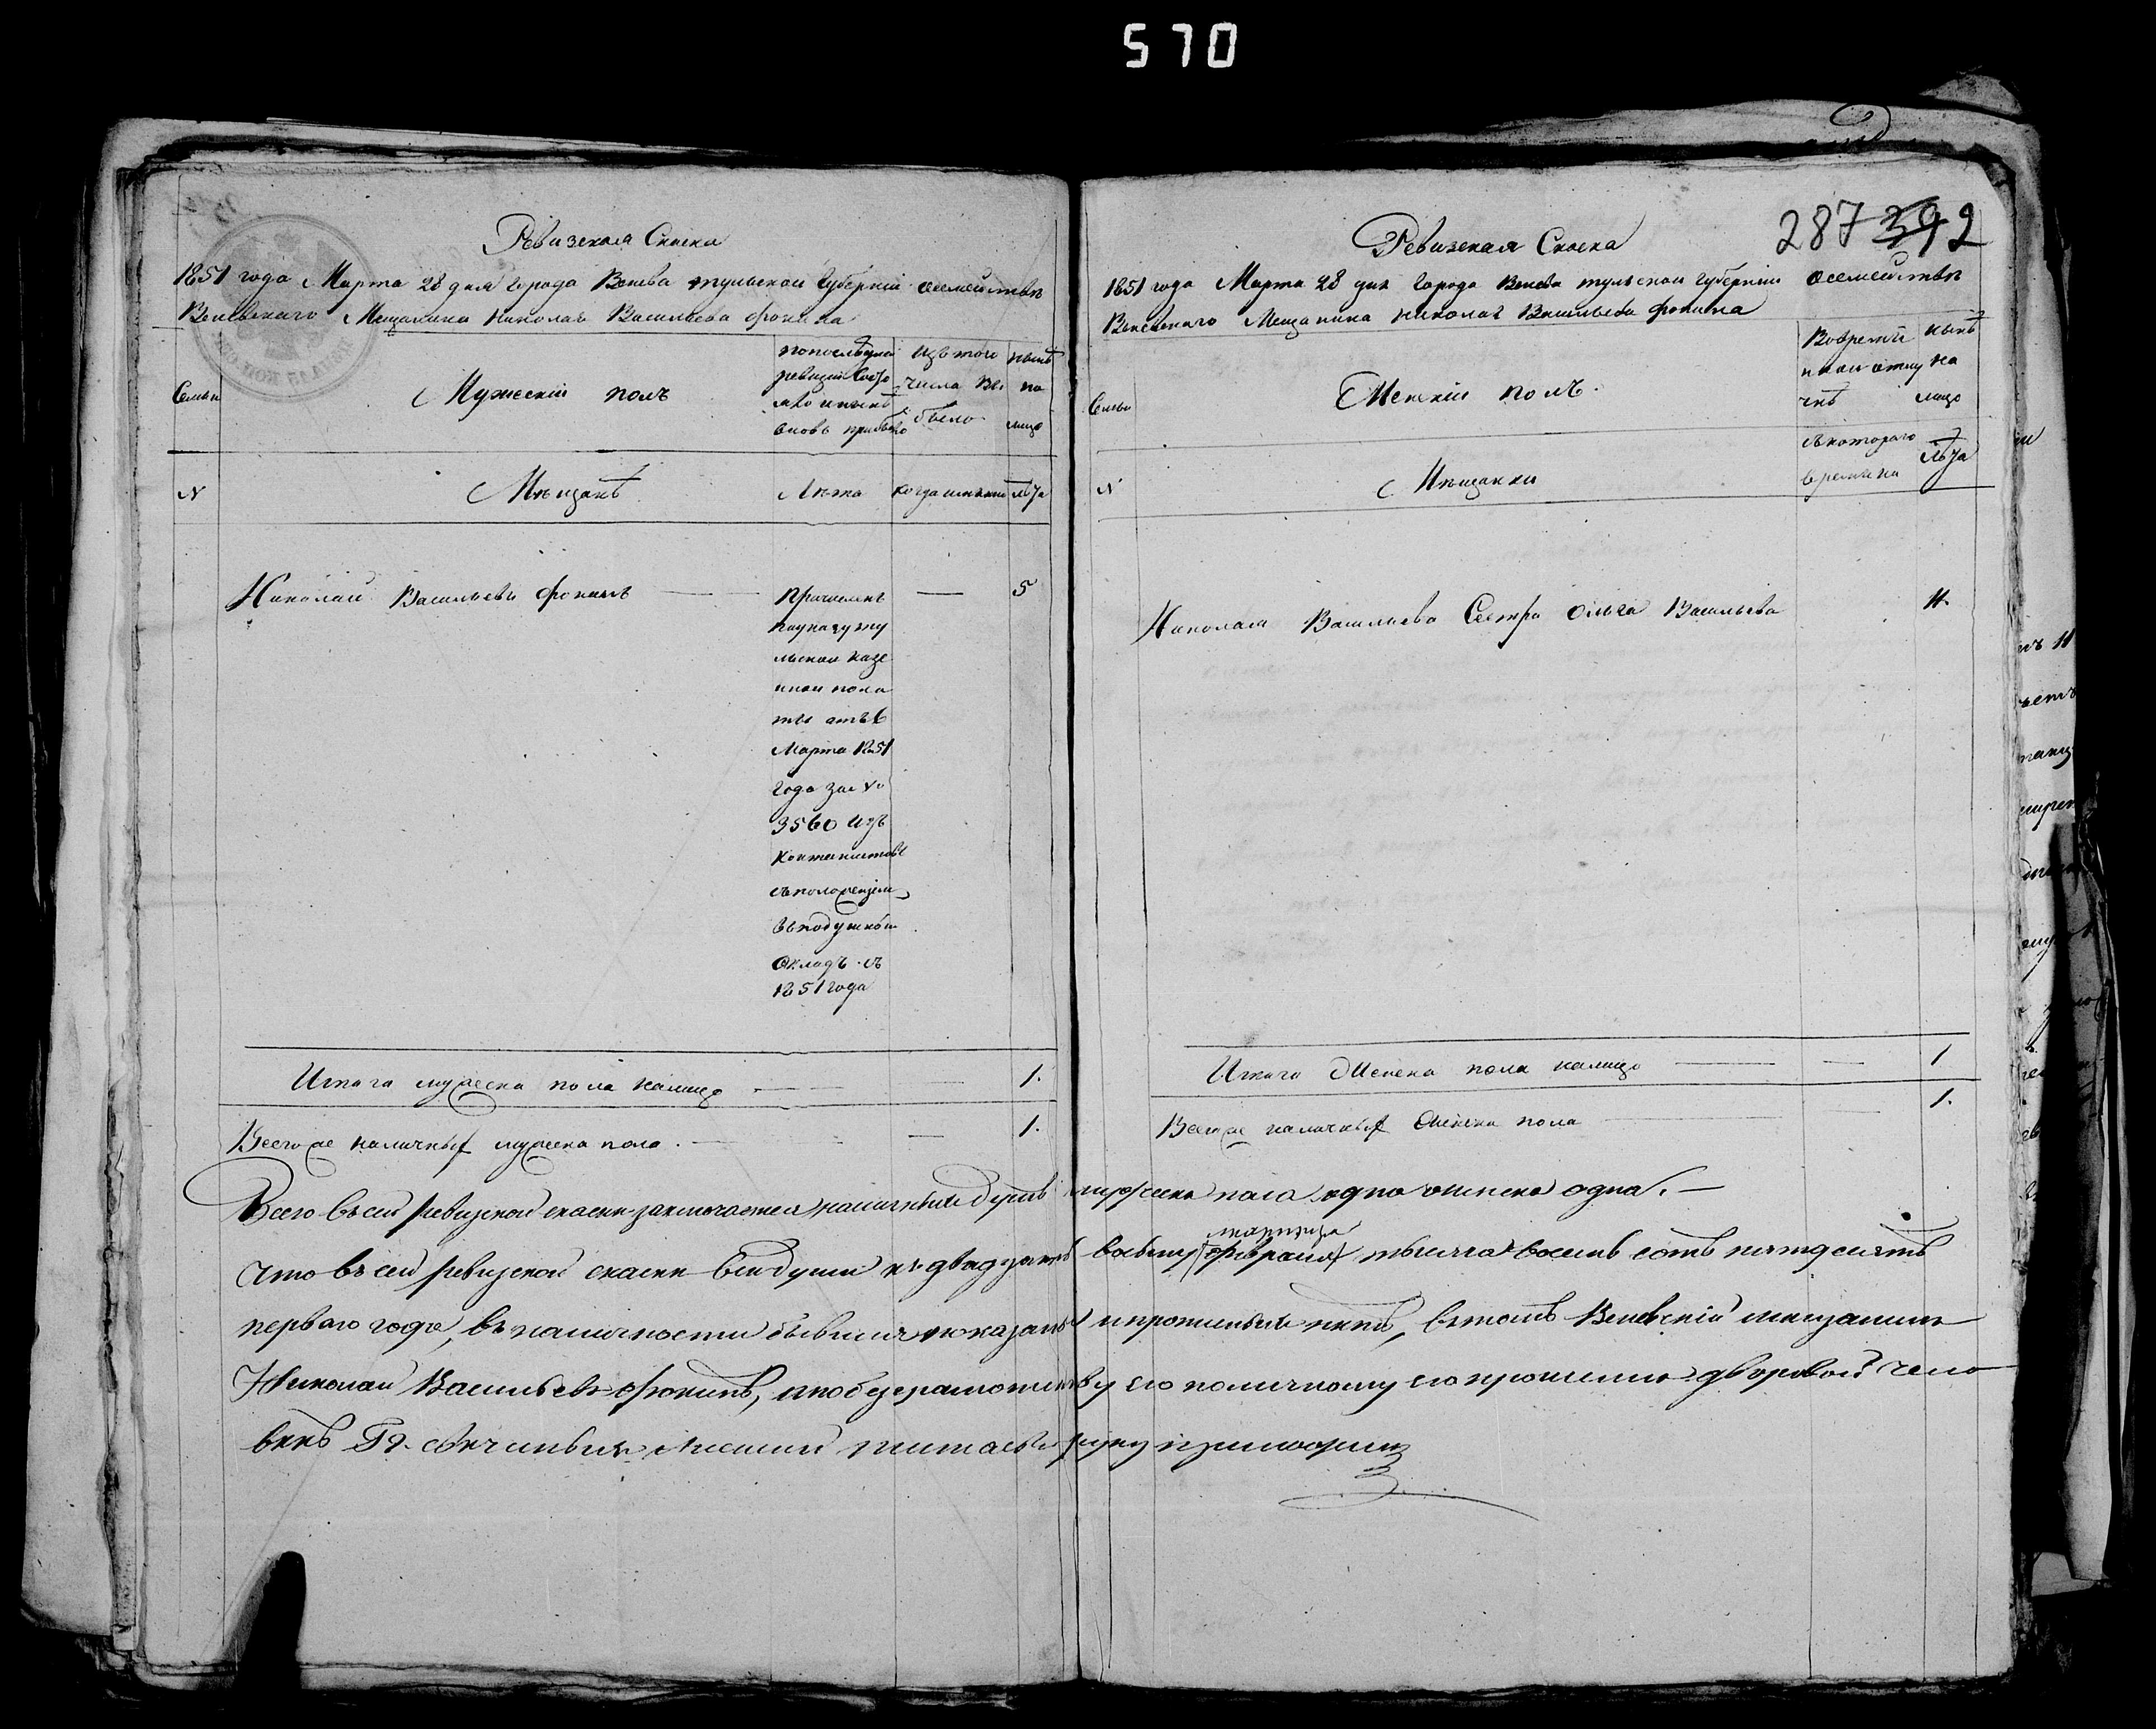 570
Ревизская Скаска
1851 года Марта 28 дня Города Венева тульской Губернии о семействе
Веневскаго Мещанина Николая Васильева Фокина
Семьи
Мужескій полъ
по последней
ревизіи состо
яло и после
вновь прибыло
Изъ того
числа вы
было
ныне
на
лицо
N
Мещане
Лета
когда именно
лета
Николай Васильевъ Фокинъ
Причисленъ
по указу ту
льской казе
нной пала
ты отъ 6
Марта 1851
Года за №
3560 Изъ
Кантонистовъ
съ положеніем
въ подушной
Окладъ съ
1851 Года
5
Итого мужеска пола налицо 1.
Всего же наличных мужеска пола 1.
287 392
Ревизская Скаска
1851 года Марта 28 дня Города Венева тульской Губерніи о семействе
Веневскаго Мещанина Николая Васильева Фокина
Семьи
Женскій полъ
Во времен
ной отлу
чке
ныне
на
лицо
N
Мещанки
съ котораго
времени
лета
Николая Васильева Сестра Ольга Васильева
11.
Итого Женска пола налицо 1
Всего же наличных Женска пола 1.
Всего въ сей ревизской скаске заключается наличных душъ мужеска пола одна женска одна.
марта
Что въ сей ревизской скаске все души къ двадцать восьму (февраля) тысяча восемь сотъ пятдесятъ
перваго года, въ наличности бывшия показаны и прописныхъ нетъ, въ томъ Веневскій мещанинъ
Николай Васильевъ Фокинъ, а по безграмотству его по личному его прошенію дворовой чело
векъ Гд. руку приложилъ